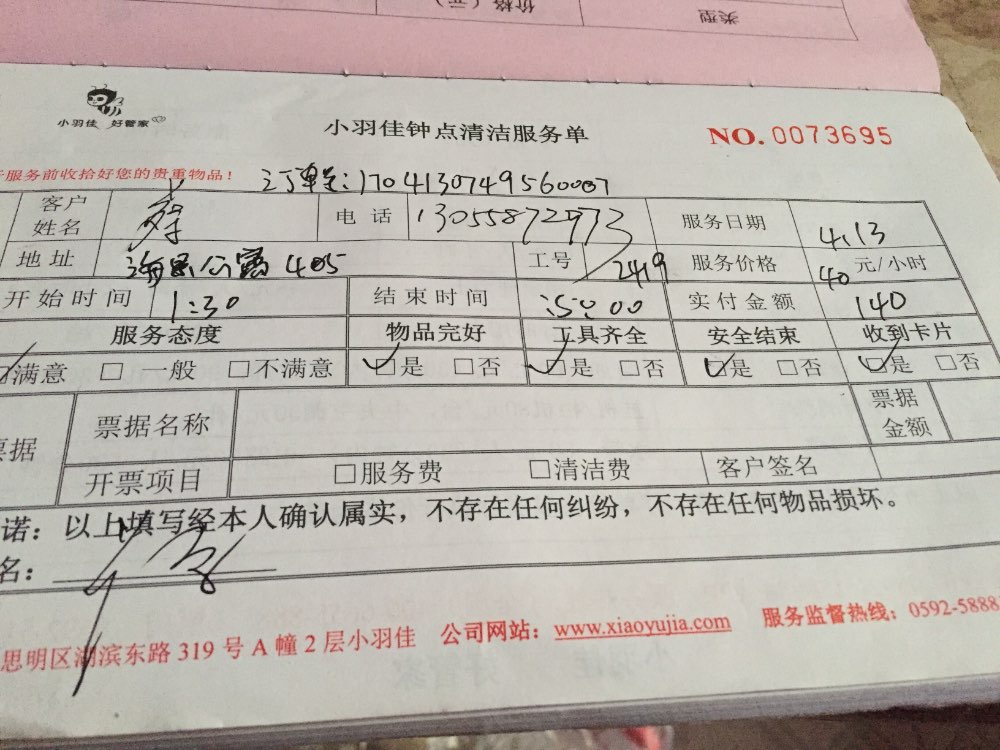 类型
价格（元）
小羽佳 好管家
小羽佳钟点清洁服务单
NO.0073695
服务前收拾好您的贵重物品！
订单号:1704130749560007
客户姓名
电话 13055872973
服务日期 4.13
地址 公寓405
工号 2419
服务价格 40 元/小时
开始时间 1:30
结束时间 :5:00
实付金额 140
服务态度 物品完好 工具齐全 安全结束 收到卡片
满意 □ 一般 □不满意 ☑是 □否 ☑是 □否 ☑是 □否 ☑是 □否
票据 票据名称 票据金额
开票项目 □服务费 □清洁费 客户签名
诺：以上填写经本人确认属实，不存在任何纠纷，不存在任何物品损坏。
名：
思明区湖滨东路319号A幢2层小羽佳 公司网站：www.xiaoyujia.com 服务监督热线：0592-5888